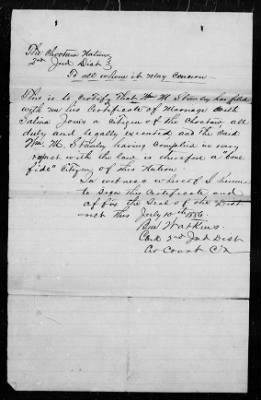 The Choctaw Nation
2nd Jud Dist
To all whom it may concern
This is to certify that Wm M. Stanley has filed
with me his Certificate of Marriage with
Jones a Citizen of the Choctaw all
duly and legally executed and the said
Wm. M. Stanley having complied in every
respect with the law is therefore a "bone
fide" Citizen of this Nation.
In witness whereof I hereunto
sign this Certificate and
affix the Seal of the Dist
Court this July 10th 1886.
Watkins
Clerk 2nd Jud Dist
Court C.N